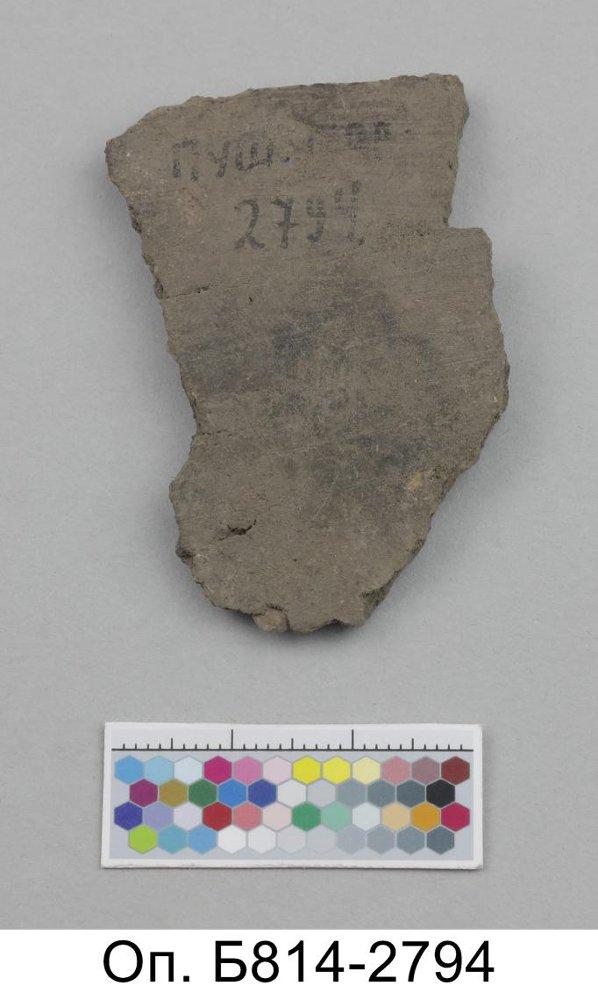 ПУШ.
2794
Оп. Б814-2794